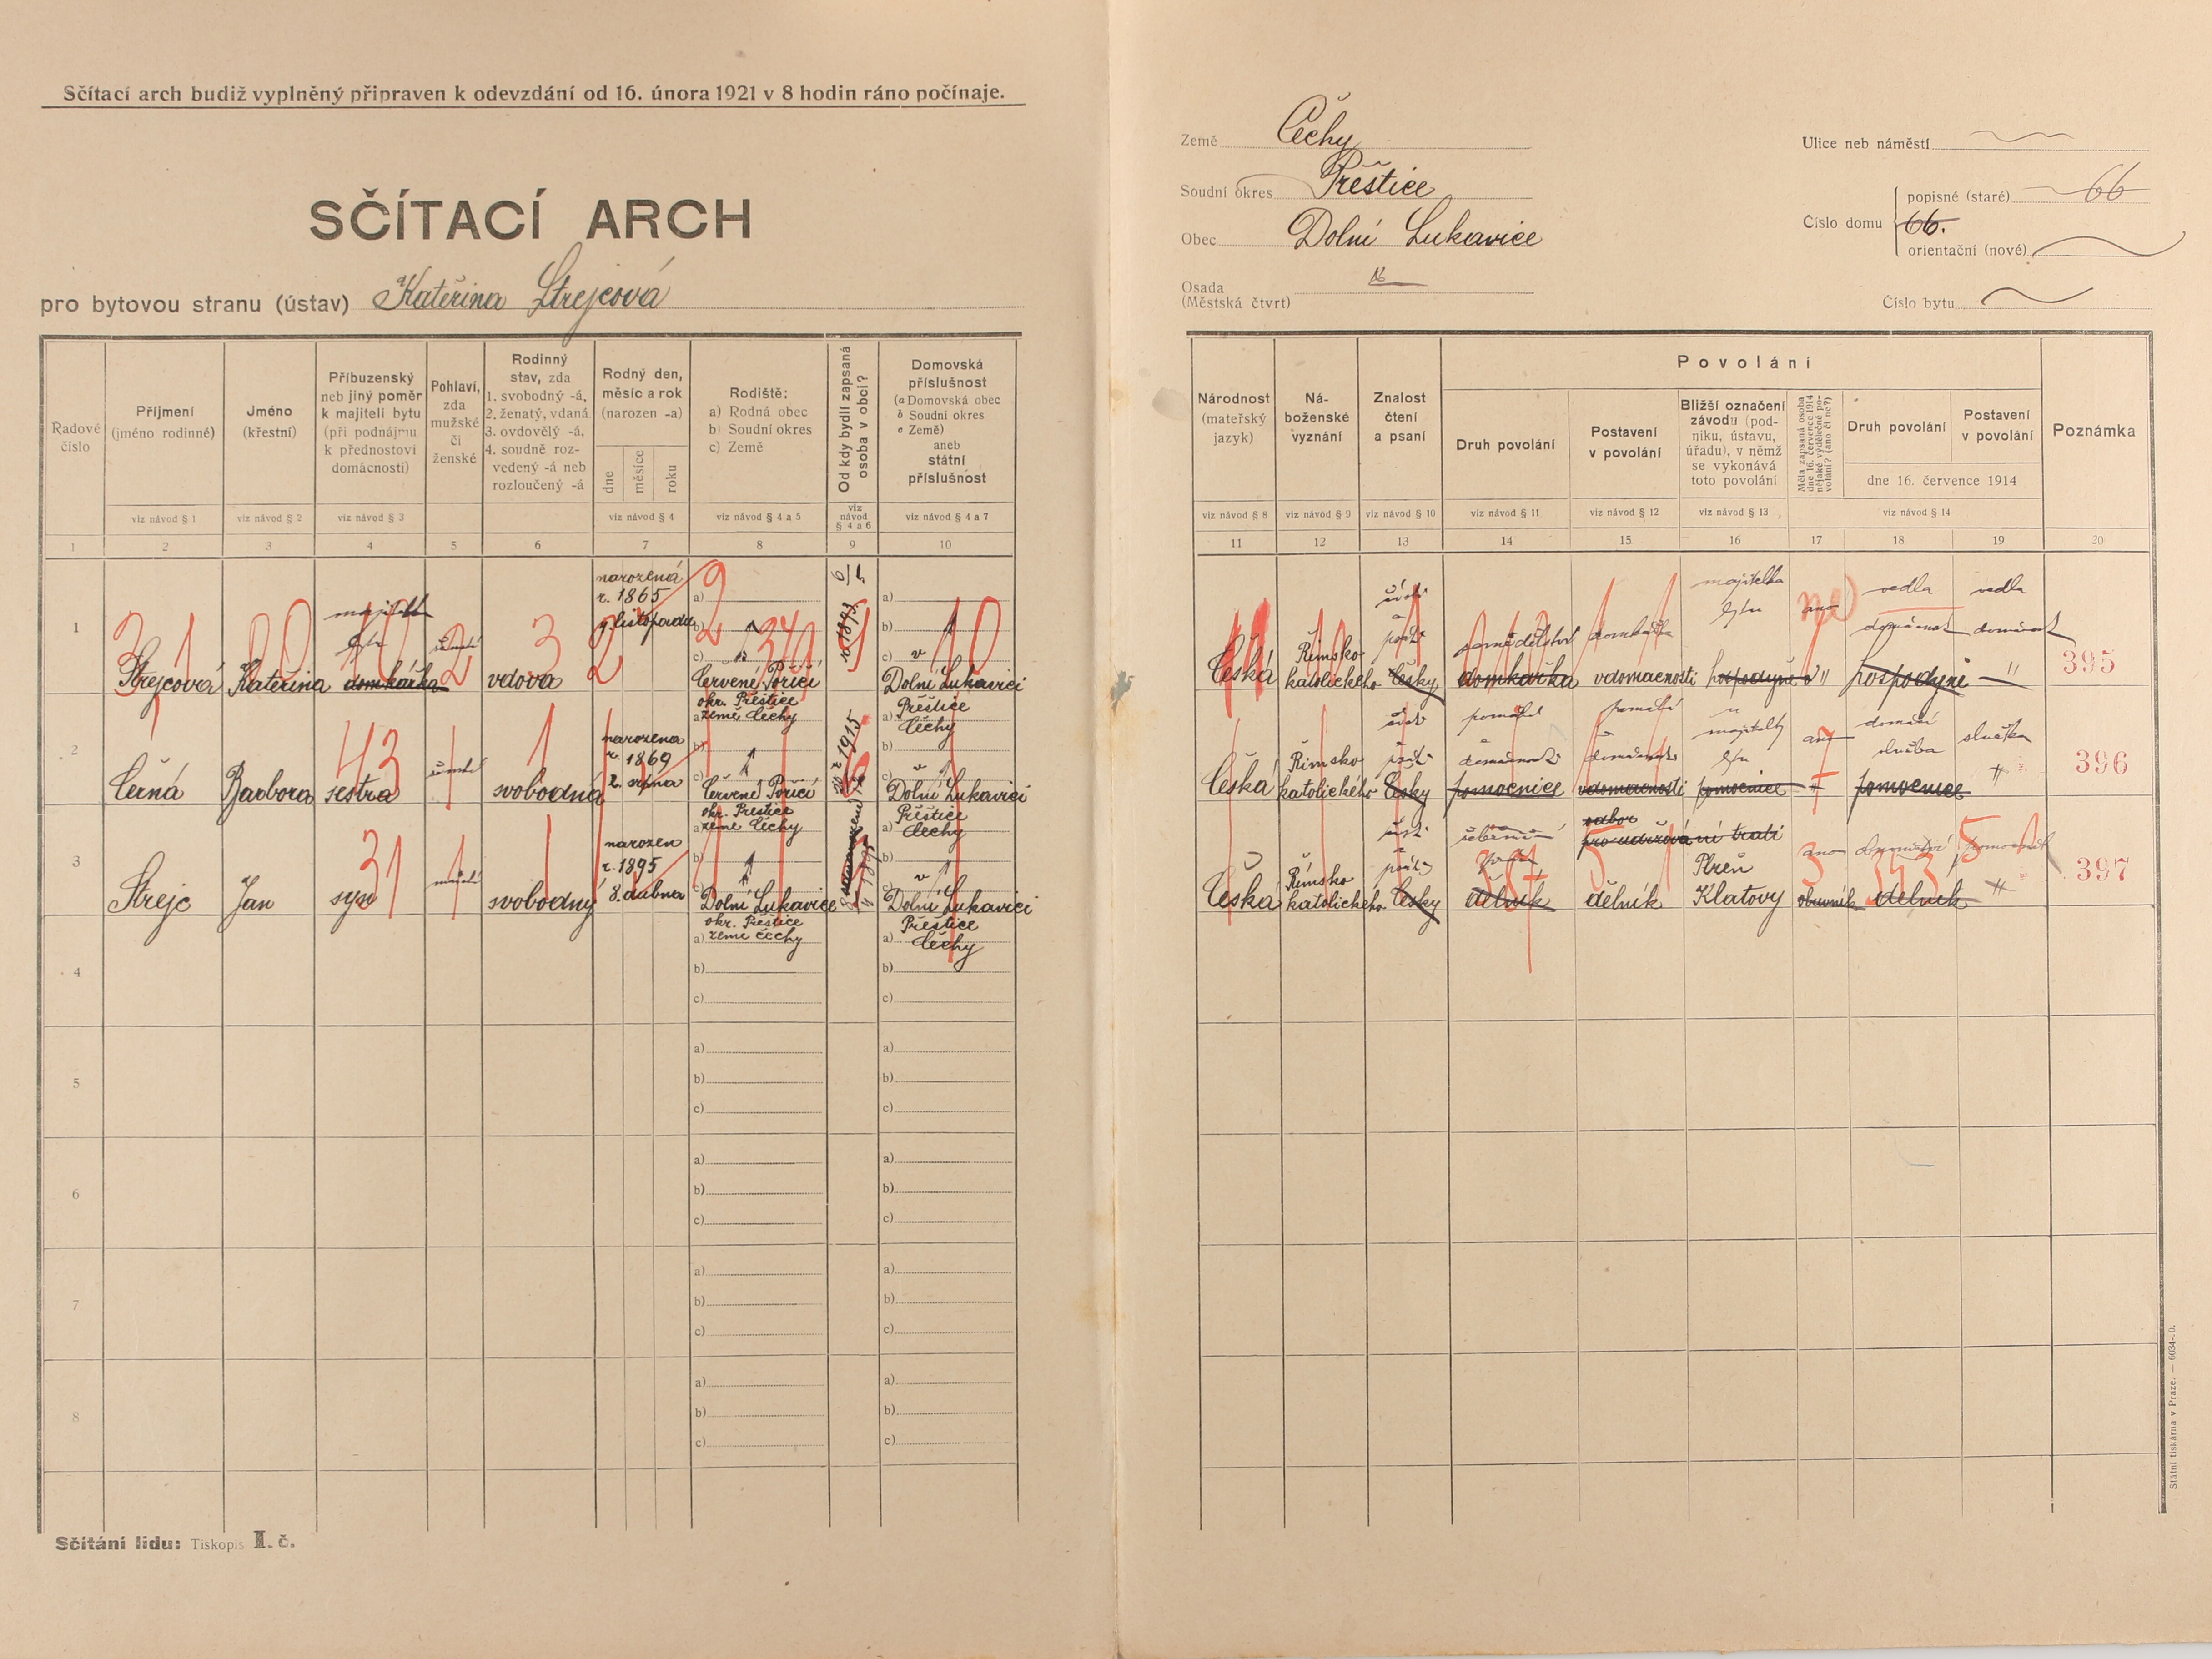 Sčítací arch budiž vyplněný připraven k odevzdání od 16. února 1921 v 8 hodin ráno počínaje.
SČÍTACÍ ARCH
pro bytovou stranu (ústav) Kateřina Strejcová
Země Čechy
Soudní okres Přeštice
Obec Dolní Lukavice
Osada
(Městská čtvrt)
Ulice neb náměstí
Číslo domu
popisné (staré) 66
66.
orientační (nové)
Číslo bytu
Řadové číslo
Příjmení (jméno rodinné)
Jméno (křestní)
Příbuzenský neb jiný poměr k majiteli bytu (při podnájmu k přednostovi domácnosti)
Pohlaví, zda mužské či ženské
Rodinný stav, zda 1. svobodný -á, 2. ženatý, vdaná 3. ovdovělý -á, 4. soudně rozvedený -á neb rozloučený -á
Rodný den, měsíc a rok (narozen -a)
dne měsíce roku
Rodiště: a) Rodná obec b) Soudní okres c) Země
Od kdy bydlí zapsaná osoba v obci?
Domovská příslušnost (a Domovská obec b Soudní okres c Země) aneb státní příslušnost
viz návod § 1 viz návod § 2 viz návod § 3 viz návod § 4 viz návod § 4 a 5 viz návod § 4 a 6 viz návod § 4 a 7
1 2 3 4 5 6 7 8 9 10
Národnost (mateřský jazyk)
Náboženské vyznání
Znalost čtení a psaní
Povolání
Druh povolání
Postavení v povolání
Bližší označení závodu (podniku, ústavu, úřadu), v němž se vykonává toto povolání
Měla zapsaná osoba dne 16. července 1914 nějaké výdělečné povolání? (ano či ne?)
Druh povolání
Postavení v povolání
dne 16. července 1914
Poznámka
viz návod § 8 viz návod § 9 viz návod § 10 viz návod § 11 viz návod § 12 viz návod § 13 viz návod § 14
11 12 13 14 15 16 17 18 19 20
1 Strejcová Kateřina domkářka vdova
narozená
r. 1865
9. listopadu
Červené Poříčí
okr. Přeštice
země Čechy
v 1893
Dolní Lukavici
Přeštice
Čechy
Česká
Římsko
katolického
česky
zemědělství
domkářka
domkářka
v domácnosti
majitelka
bytu
hospodyně
ano
ne
vedla
domácnost
hospodyně
vedla
domácnost
395
2 Černá Barbora sestra svobodná
narozena
r. 1869
2. srpna
Červené Poříčí
okr. Přeštice
země Čechy
1915
Dolní Lukavici
Přeštice
Čechy
Česká
Římsko
katolického
česky
pomocnice
v domácnosti
majitelky
bytu
pomocnice
ano
domácí
služba
pomocnice
služka
396
3 Strejc Jan syn svobodný
narozen
r. 1895
8. dubna
Dolní Lukavice
okr. Přeštice
země Čechy
1895
Dolní Lukavici
Přeštice
Čechy
Česká
Římsko
katolického
česky
dělník
odbor
pro udržování trati
dělník
Plzeň
Klatovy
ano
obuvník
dělník
397
4
5
6
7
8
Sčítání lidu: Tiskopis I. č.
Státní tiskárna v Praze. — 6034-.0.